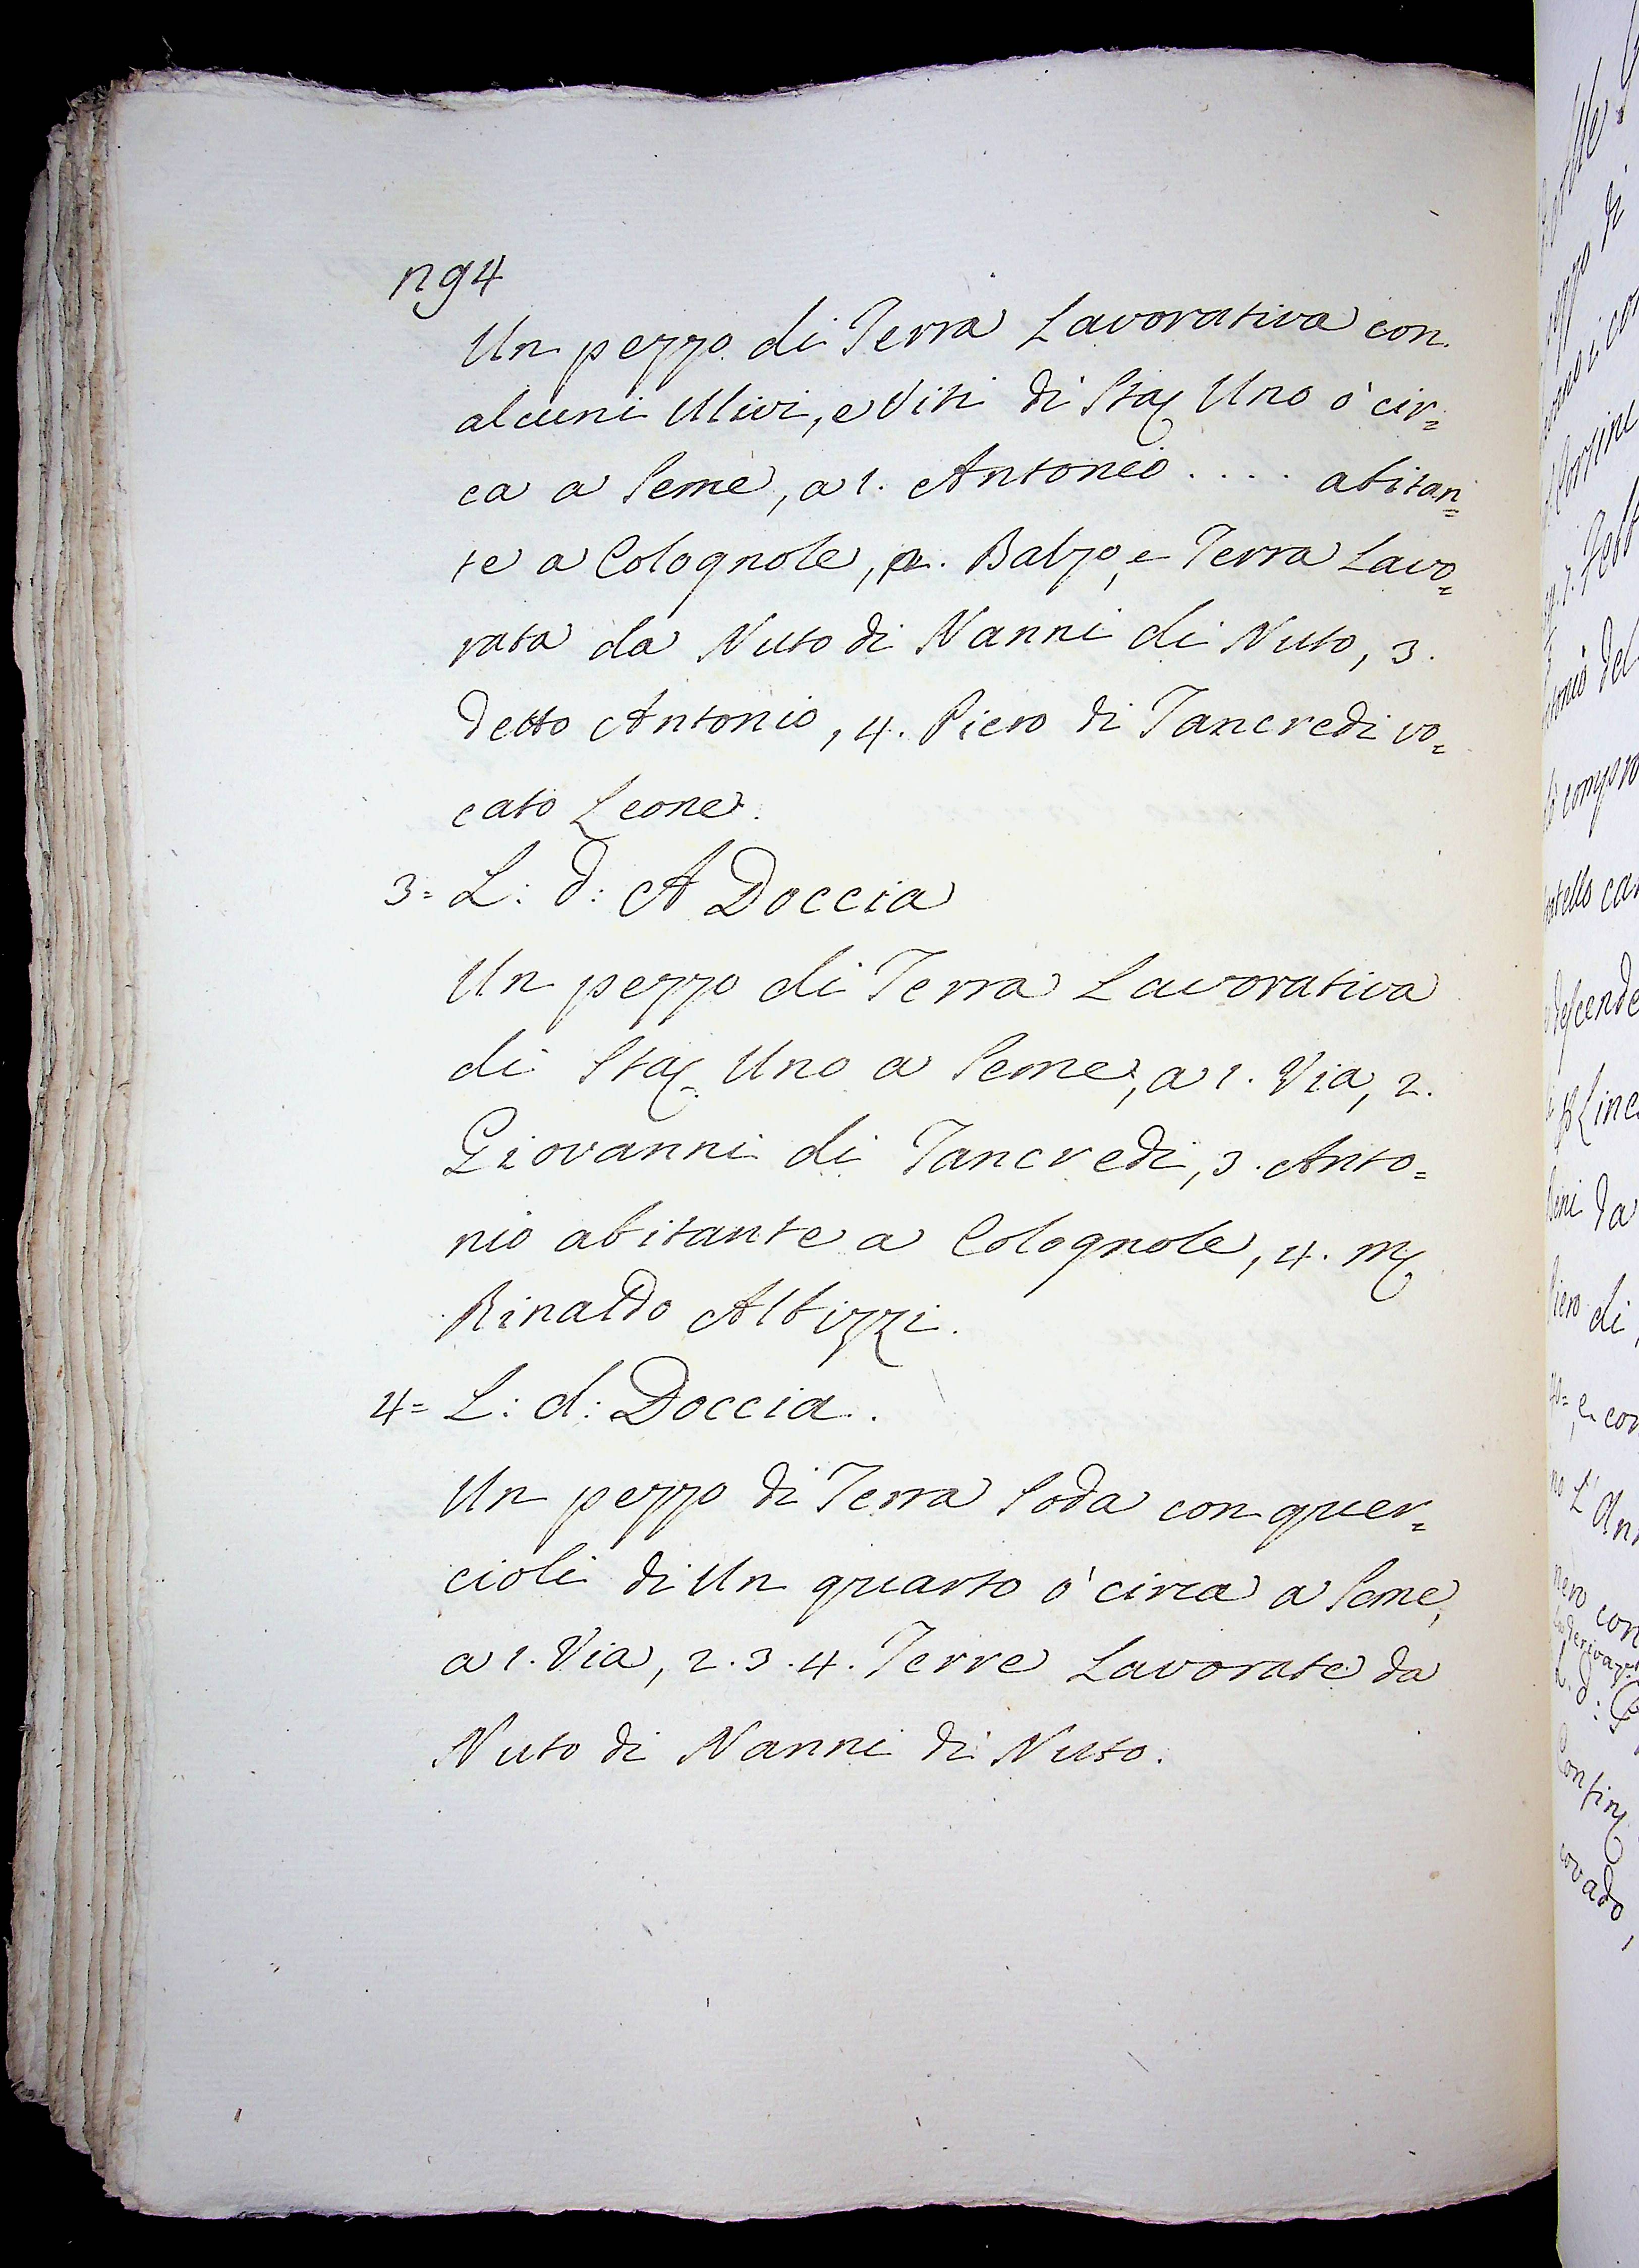 n94
Un pezzo di Terra Lavorativa con
alcuni Ulivi, e Viti di Sta: Uno ò cir=
ca a Seme, a 1. Antonio .... abitan=
te a Colognole, 2. Balzo, e Terra Lavo=
rata da Nuto di Nanni di Nuto, 3.
Detto Antonio, 4. Piero di Tancredi vo=
cato Leone.
3= L: d: A Doccia
Un pezzo di Terra Lavorativa
di Sta: Uno a Seme, a 1. Via, 2.
Giovanni di Tancredi, 3. Anto=
nio abitante a Colognole, 4. M:
Rinaldo Albizzi.
4= L: d: Doccia.
Un pezzo di Terra Soda con quer=
cioli di Un quarto ò circa a Seme,
a 1. Via, 2. 3. 4. Terre Lavorate da
Nuto di Nanni di Nuto.